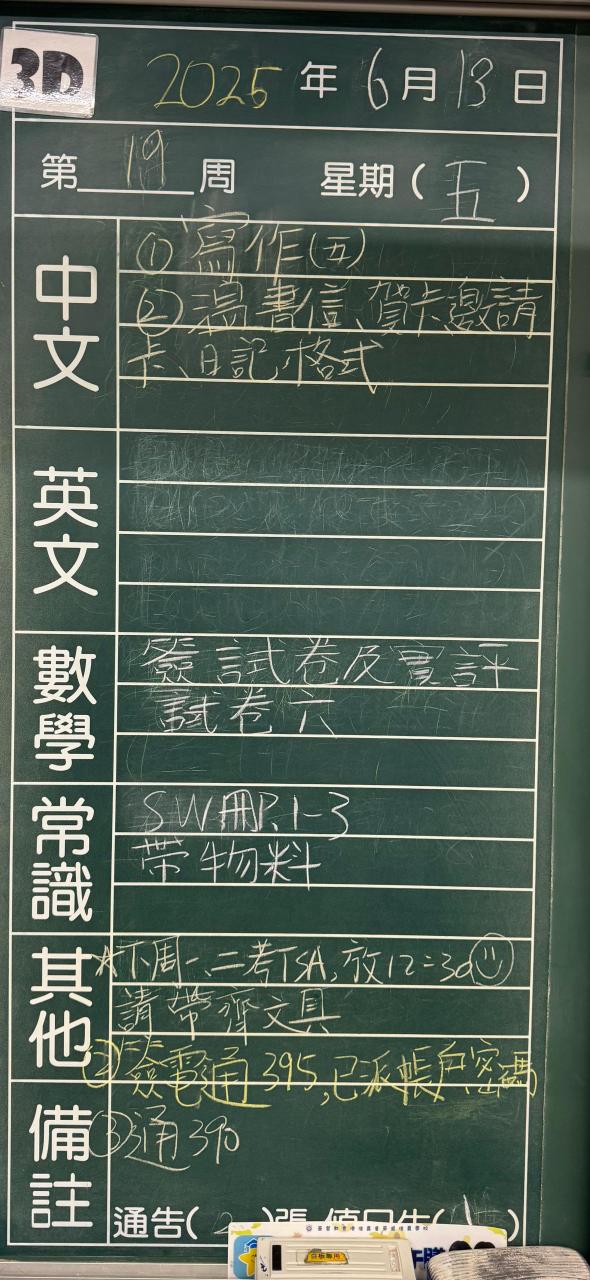 3D
2025年6月13日
第19周 星期(五)
中文
①寫作(五)
②温書信、賀卡邀請
卡、日記格式
英文
數學
簽試卷及實評
試卷六
常識
SW冊P.1-3
帶物料
其他
★下周一、二考TSA,放12:30
請帶齊文具
②簽電通395,已派帳戶密碼
備註
③通390
通告(2)張 值日生( )
白板專用